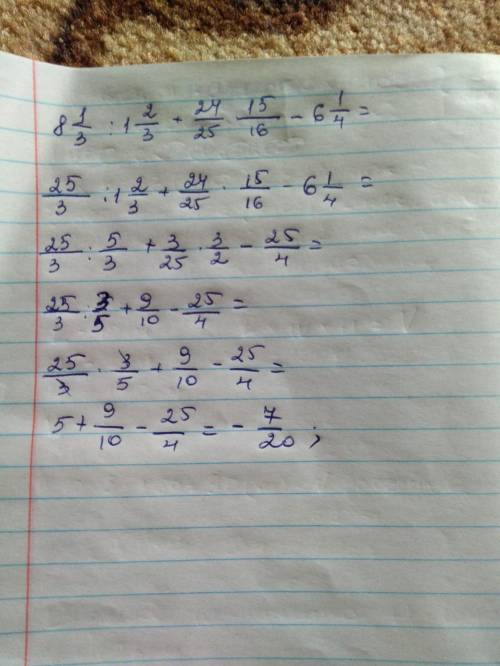 8 1/3 : 1 2/3 + 24/25 · 15/16 − 6 1/4 =
25/3 : 1 2/3 + 24/25 · 15/16 − 6 1/4 =
25/3 : 5/3 + 3/25 · 3/2 − 25/4 =
25/3 : 3/5 + 9/10 − 25/4 =
25/3 · 3/5 + 9/10 − 25/4 =
5 + 9/10 − 25/4 = − 7/20 ;